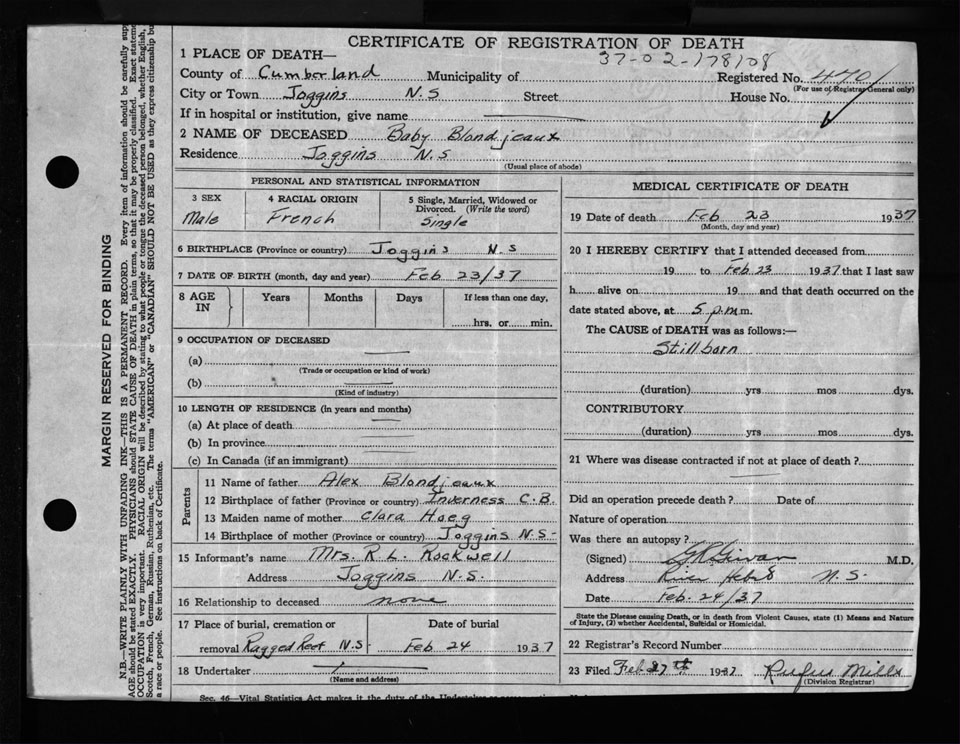 CERTIFICATE OF REGISTRATION OF DEATH
37-02-178108
1 PLACE OF DEATH—
County of Cumberland Municipality of Registered No. 4701
(For use of Registrar General only)
City or Town Joggins N.S Street House No.
If in hospital or institution, give name
2 NAME OF DECEASED Baby Blondjeaux
Residence Joggins N.S
(Usual place of abode)
PERSONAL AND STATISTICAL INFORMATION
3 SEX 4 RACIAL ORIGIN 5 Single, Married, Widowed or Divorced. (Write the word)
Male French Single
6 BIRTHPLACE (Province or country) Joggins N.S
7 DATE OF BIRTH (month, day and year) Feb 23/37
8 AGE IN Years Months Days If less than one day,
hrs. or min.
9 OCCUPATION OF DECEASED
(a)
(Trade or occupation or kind of work)
(b)
(Kind of industry)
10 LENGTH OF RESIDENCE (in years and months)
(a) At place of death
(b) In province
(c) In Canada (if an immigrant)
Parents
11 Name of father Alex Blondjeaux
12 Birthplace of father (Province or country) Inverness C.B.
13 Maiden name of mother Clara Hoeg
14 Birthplace of mother (Province or country) Joggins N.S-
15 Informant's name Mrs. R. L. Rockwell
Address Joggins N.S.
16 Relationship to deceased none
17 Place of burial, cremation or Date of burial
removal Ragged Reef N.S Feb 24 1937
18 Undertaker
(Name and address)
MEDICAL CERTIFICATE OF DEATH
19 Date of death Feb 23 1937
(Month, day and year)
20 I HEREBY CERTIFY that I attended deceased from
19 to Feb 23 1937 that I last saw
h alive on 19 and that death occurred on the
date stated above, at 5 p.m m.
The CAUSE of DEATH was as follows:—
Stillborn
(duration) yrs mos dys.
CONTRIBUTORY
(duration) yrs mos dys.
21 Where was disease contracted if not at place of death?
Did an operation precede death? Date of
Nature of operation
Was there an autopsy?
(Signed) Givan M.D.
Address River Hebert N.S.
Date Feb. 24/37
State the Disease causing Death, or in death from Violent Causes, state (1) Means and Nature
of Injury, (2) whether Accidental, Suicidal or Homicidal.
22 Registrar's Record Number
23 Filed Feb 27th 1937 Rufus Mills
(Division Registrar)
Sec. 46—Vital Statistics Act makes it the duty of the Undertaker
MARGIN RESERVED FOR BINDING
N.B.—WRITE PLAINLY WITH UNFADING INK—THIS IS A PERMANENT RECORD. Every item of information should be carefully
AGE should be stated EXACTLY. PHYSICIANS should STATE CAUSE OF DEATH in plain terms, so that it may be properly classified. Exact
OCCUPATION is very important. RACIAL ORIGIN will be described by stating to what people or tongue the deceased person belonged, whether English,
Scotch, French, German, Russian, Ruthenian, etc. The terms "AMERICAN" or "CANADIAN" SHOULD NOT BE USED as they express citizenship
a race or people. See instructions on back of Certificate.